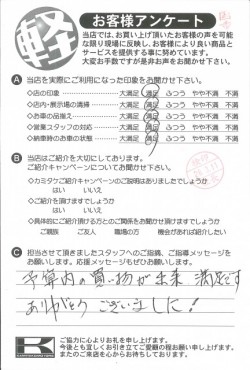 軽
お客様アンケート
当店では、お買い上げ頂いたお客様の声を可能
な限り現場に反映し、お客様により良い商品と
サービスを提供する事に努めています。
大変お手数ですが是非お声をお聞かせ下さい。
A 当店を実際にご利用になった印象をお聞かせ下さい。
◇店の印象 大満足 満足 ふつう やや不満 不満
◇店内・展示場の清掃 大満足 満足 ふつう やや不満 不満
◇お車の品揃え 大満足 満足 ふつう やや不満 不満
◇営業スタッフの対応 大満足 満足 ふつう やや不満 不満
◇納車時のお車の状態 大満足 満足 ふつう やや不満 不満
B 当店はご紹介を大切にしております。
ご紹介キャンペーンについてお聞かせ下さい。
◇カミタウご紹介キャンペーンのご説明はありましたでしょうか
はい いいえ
◇ご紹介を頂けますでしょうか
はい いいえ
◇具体的にご紹介頂ける方とのご関係をお聞かせ頂けますでしょうか
ご親族 ご友人 職場の方 機会があれば紹介したい
C 担当させて頂きましたスタッフへのご指摘、ご指導メッセージを
お願いします。応援メッセージもぜひお願いします。
予算内の買い物が出来 満足です
ありがとうございました!
K
ご協力に心よりお礼を申し上げます。
今後とも宜しくお引き立てご愛顧の程お願い申し上げます。
またのご来店を心からお待ちしております。